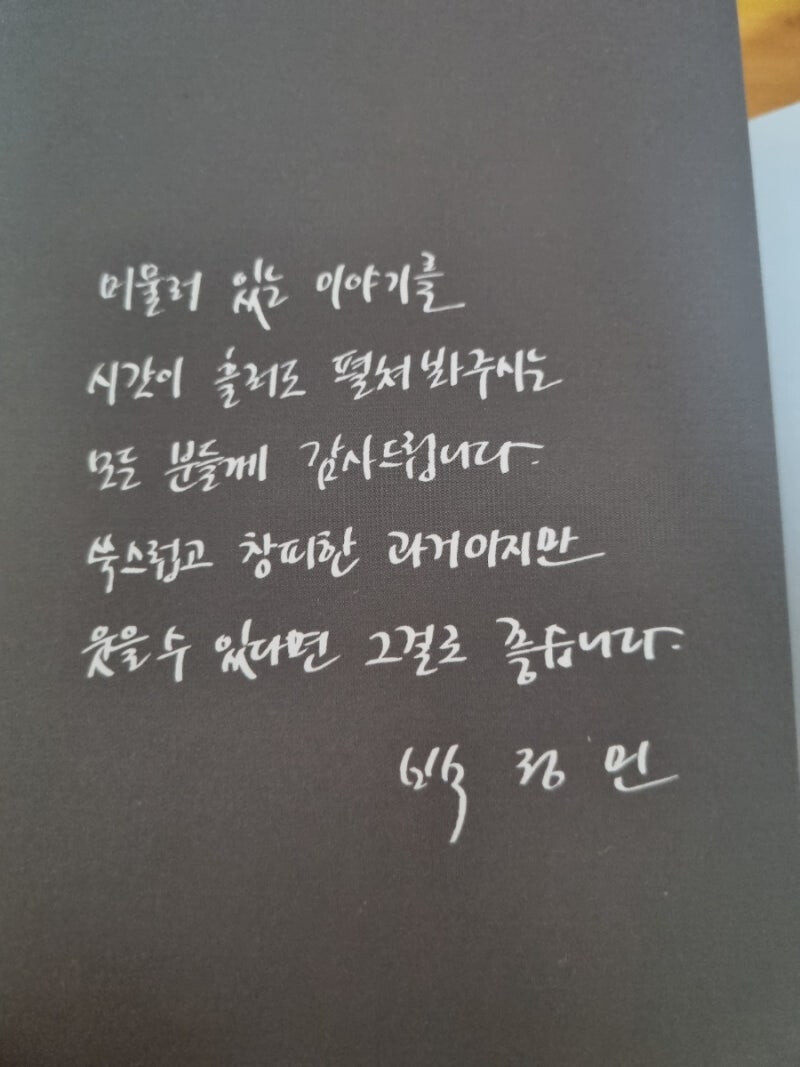 머물러 있는 이야기를
시간이 흘러도 펼쳐봐주시는
모든 분들께 감사드립니다.
쑥스럽고 창피한 과거이지만
웃을 수 있다면 그걸로 좋습니다.
백 정 민